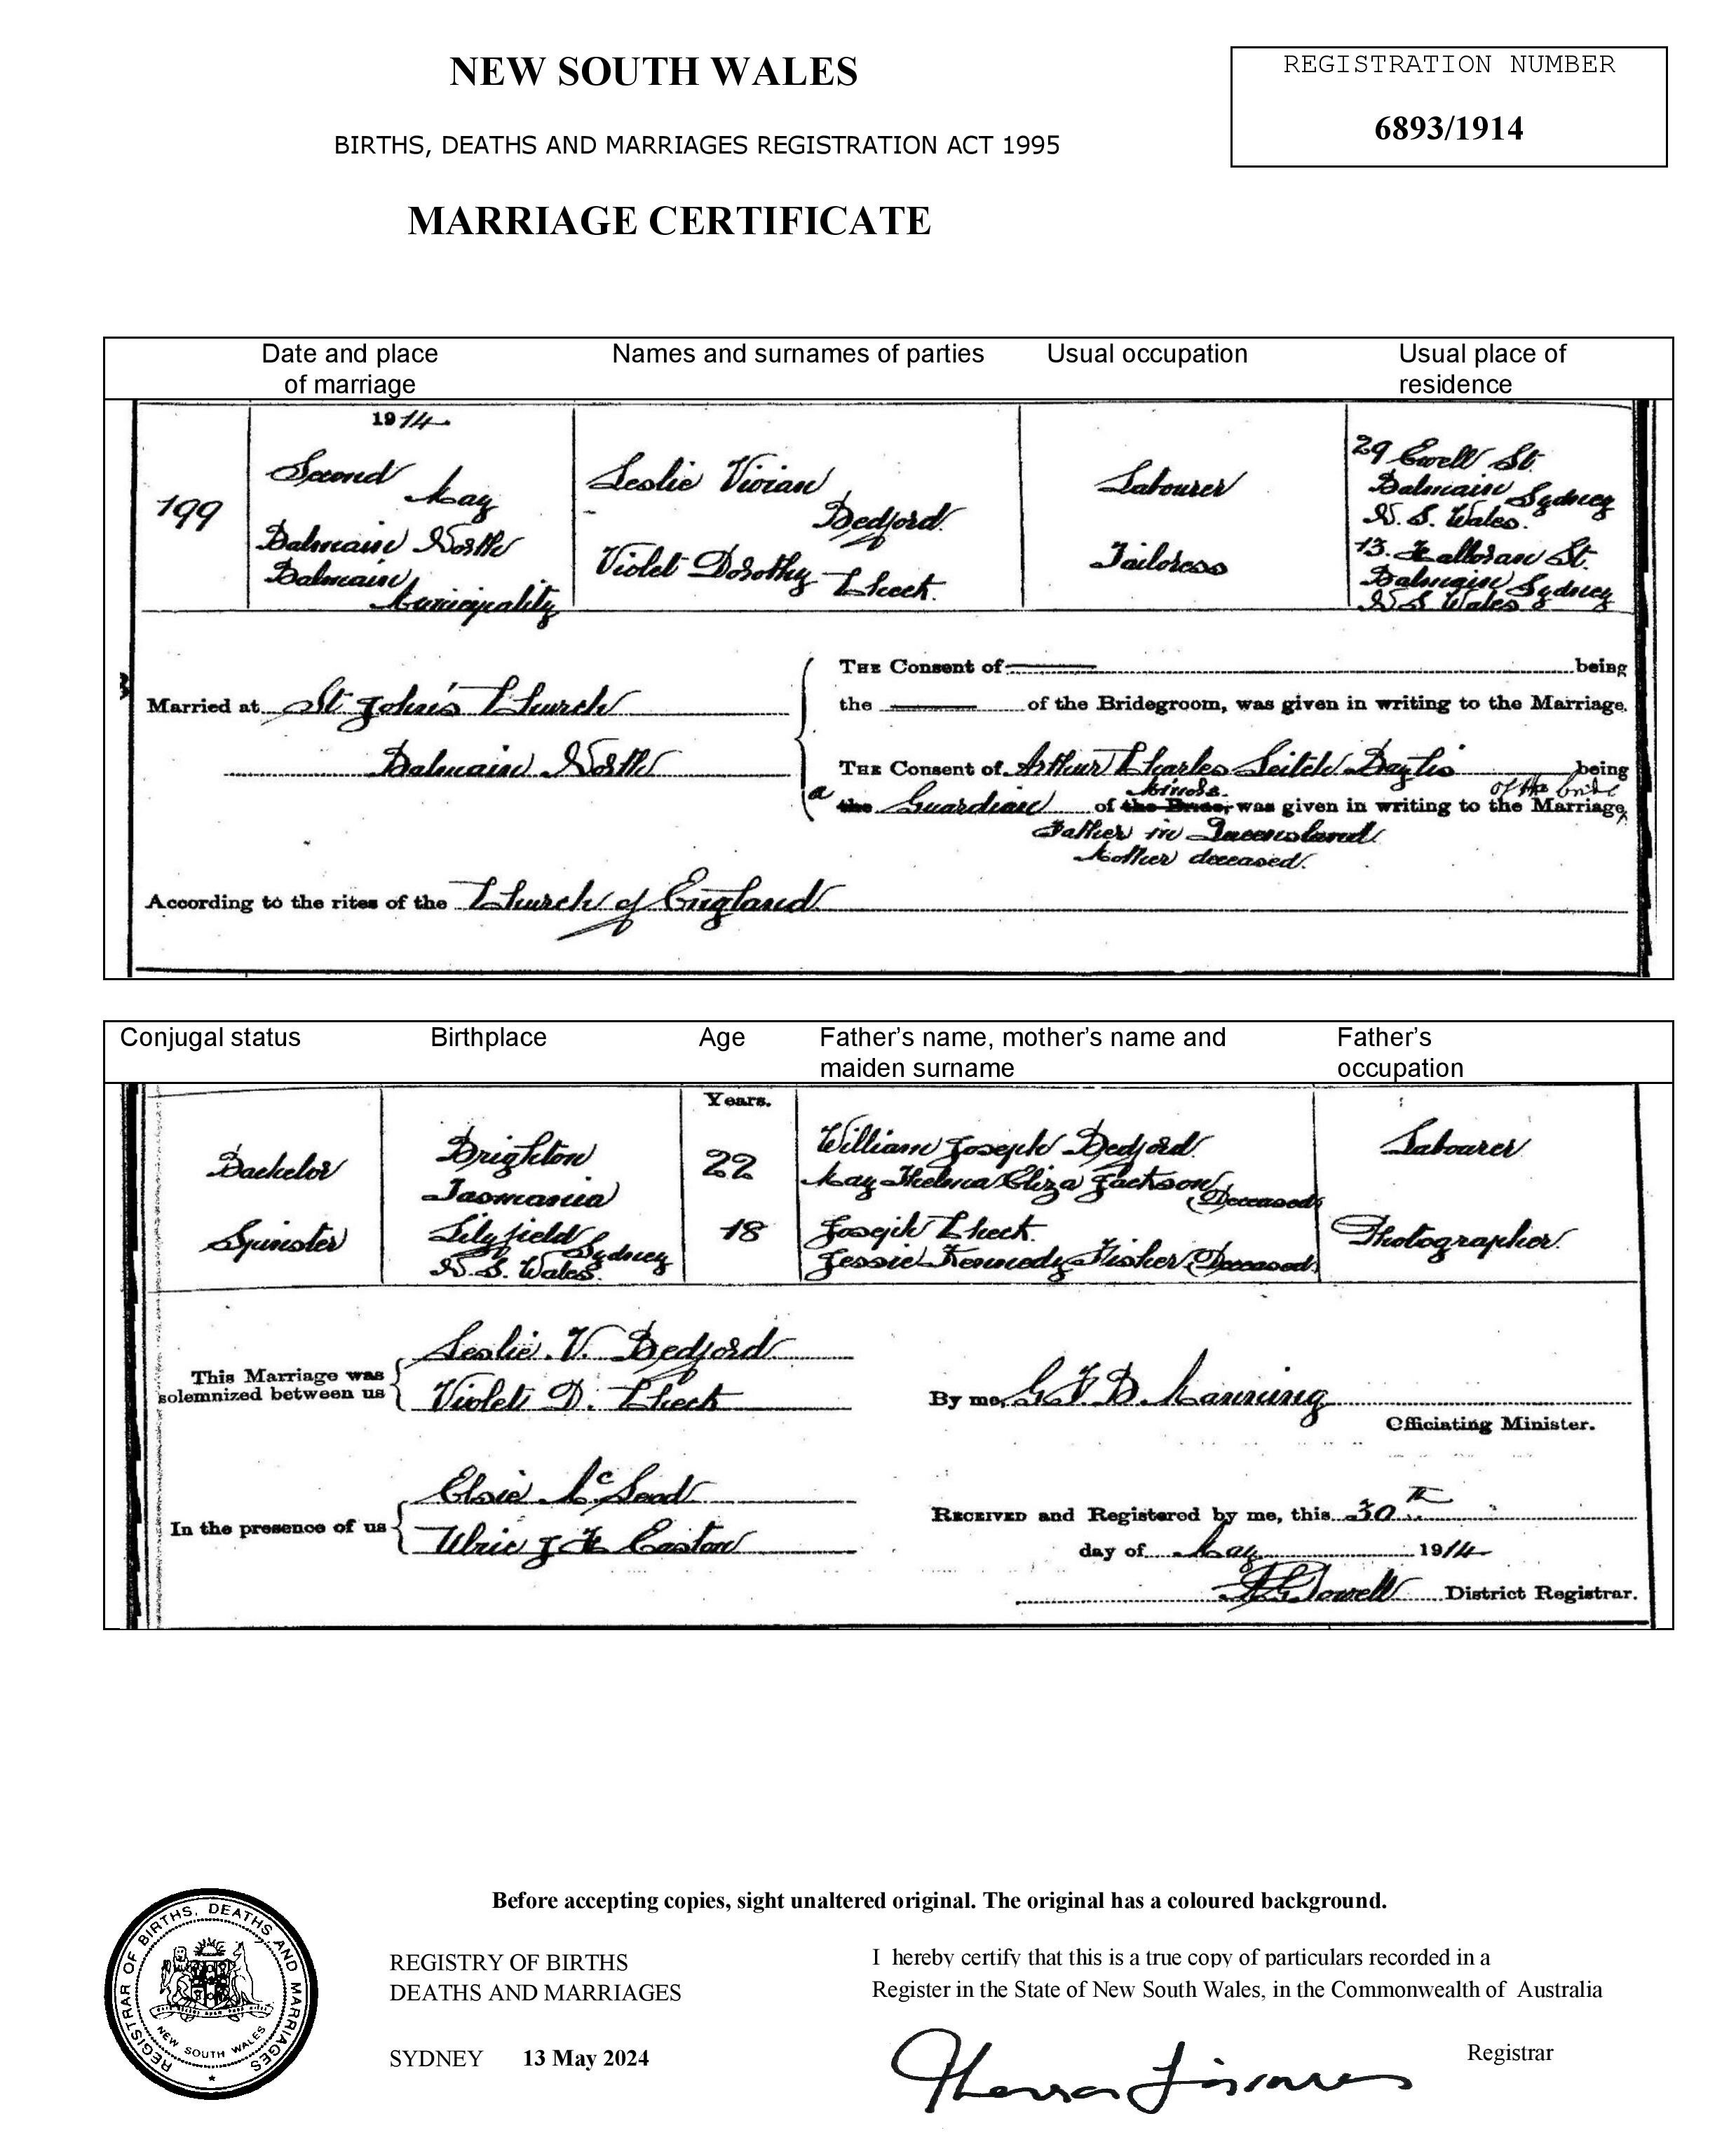 NEW SOUTH WALES
REGISTRATION NUMBER
6893/1914
BIRTHS, DEATHS AND MARRIAGES REGISTRATION ACT 1995
MARRIAGE CERTIFICATE
Date and place of marriage
Names and surnames of parties
Usual occupation
Usual place of residence
199
1914
Second May
Balmain North
Balmain Municipality
Leslie Vivian Bedford
Violet Dorothy Cheek.
Labourer
Tailoress
29 Ewell St.
Balmain Sydney
N. S. Wales.
13. Halloran St.
Balmain Sydney
N S Wales
Married at St John's Church
Balmain North
THE Consent of being
the of the Bridegroom, was given in writing to the Marriage.
THE Consent of Arthur Charles Leitch being
a the Guardian of minors the Bride, was given in writing to the Marriage, of the bride
Father in Queensland
Mother deceased.
According to the rites of the Church of England
Conjugal status
Birthplace
Age
Father's name, mother's name and maiden surname
Father's occupation
Years.
Bachelor
Brighton
Tasmania
22
William Joseph Bedford
May Thelma Eliza Jackson (Deceased)
Labourer
Spinster
Lilyfield Sydney
N. S. Wales.
18
Joseph Cheek.
Jessie Kennedy Fisher (Deceased)
Photographer.
This Marriage was solemnized between us
Leslie. V. Bedford
Violet D. Cheek
By me, G F B. Manning
Officiating Minister.
In the presence of us
Elsie McLeod
Ulric J H Easton
RECEIVED and Registered by me, this 30th
day of May 1914
District Registrar.
Before accepting copies, sight unaltered original. The original has a coloured background.
REGISTRAR OF BIRTHS, DEATHS AND MARRIAGES
NEW SOUTH WALES
REGISTRY OF BIRTHS
DEATHS AND MARRIAGES
SYDNEY 13 May 2024
I hereby certify that this is a true copy of particulars recorded in a
Register in the State of New South Wales, in the Commonwealth of Australia
Registrar